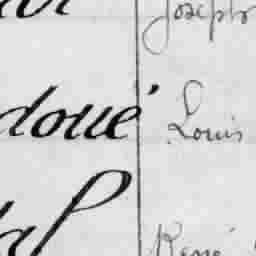 Joseph
doué Louis
al René